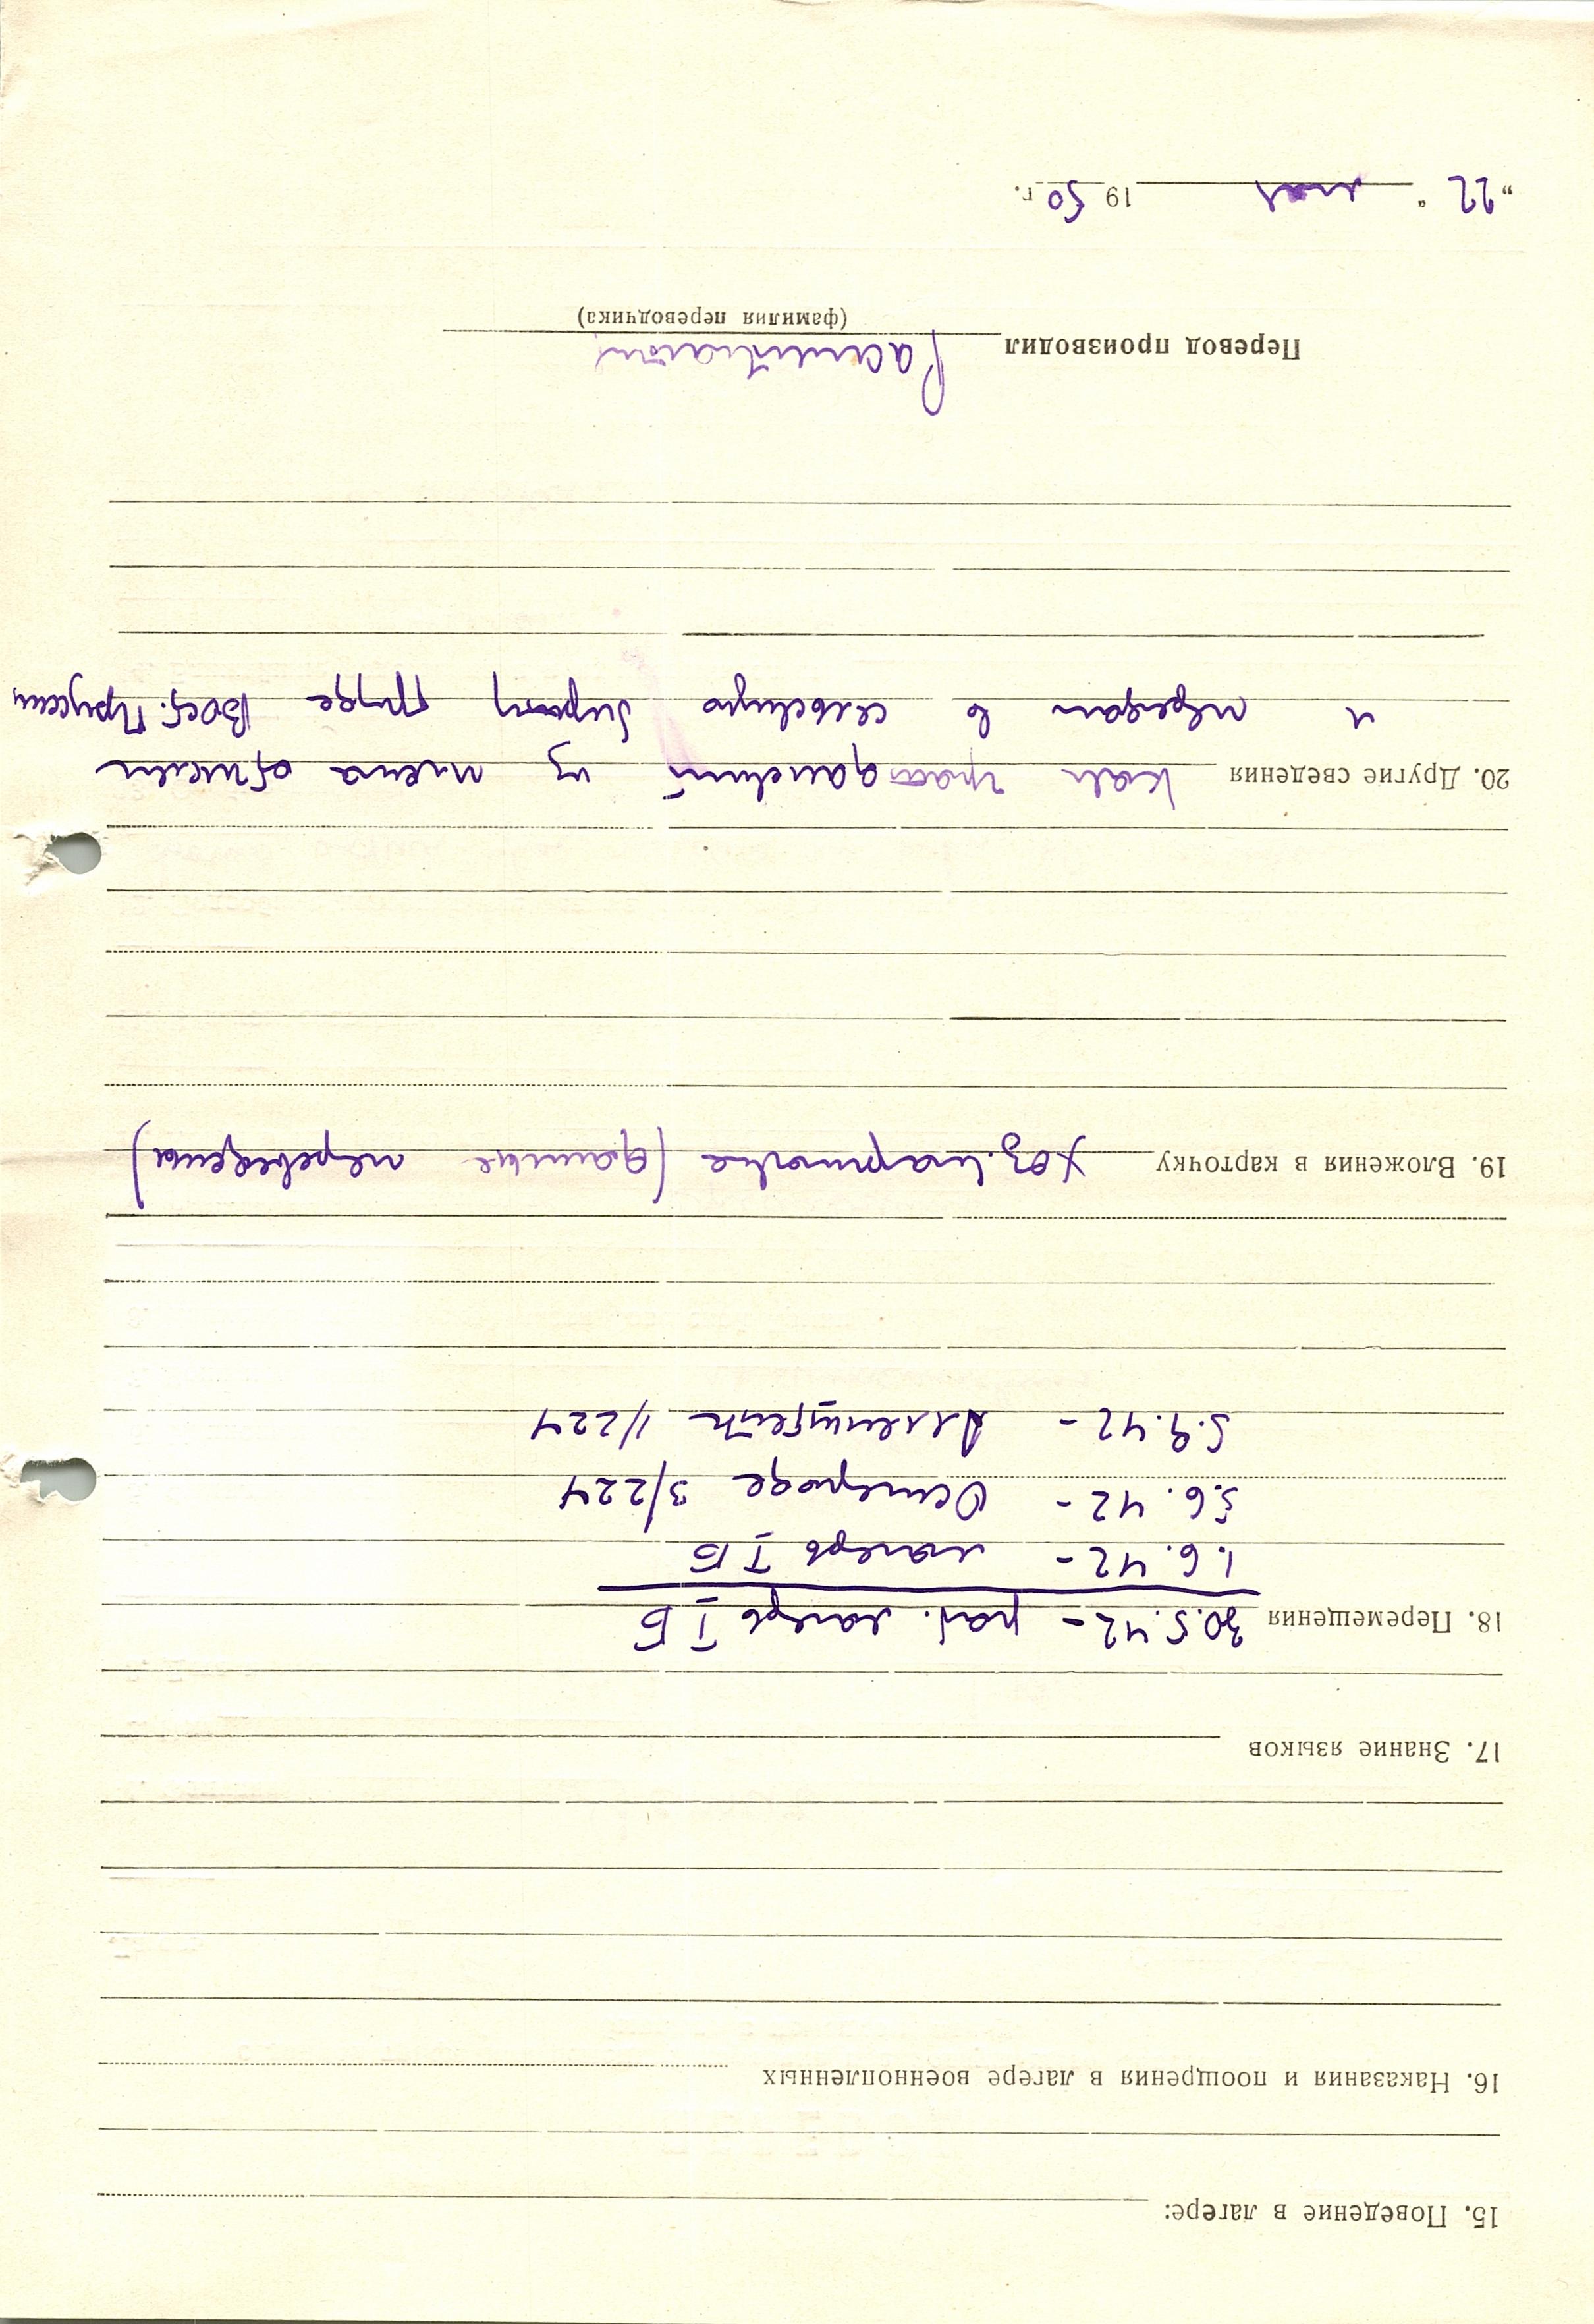 15. Поведение в лагере:
16. Наказания и поощрения в лагере военнопленных
17. Знание языков
18. Перемещения 30.5.42 – раб. лагерь I Б
1.6.42 – лагерь I Б
5.6.42 – Остероде 3/224
5.9.42 – 1/224
19. Вложения в карточку хоз. карточка (данные переведены)
20. Другие сведения как гражданский из плена
и передан в сельскую биржу Вост. Пруссии
Перевод производил
(фамилия переводчика)
„22“ мая 1950 г.